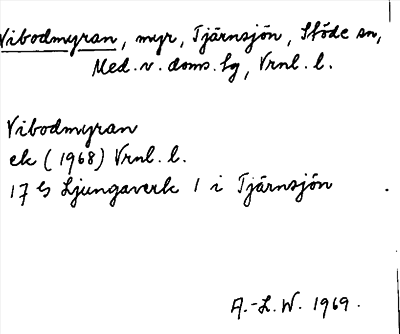 Vibodmyran, myr, Tjärnsjön, Stöde sn,
Med. v. doms. lg, Vrnl. l.
Vibodmyran
ek (1968) Vrnl. l.
17 G Ljungaverk 1 i Tjärnsjön
A.-L. W. 1969.